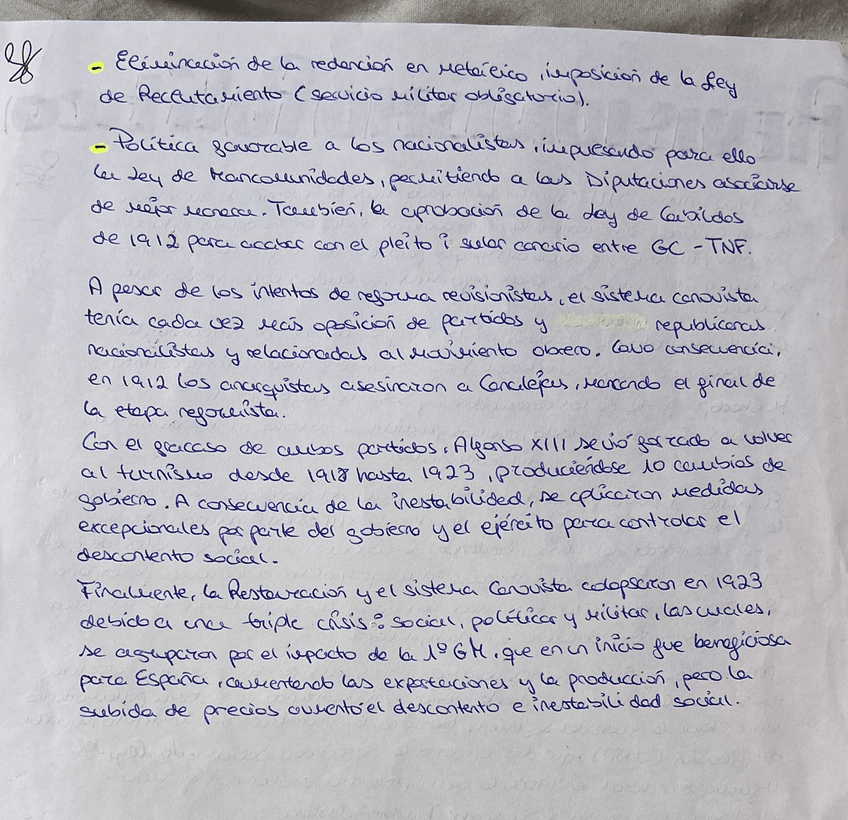 - Eliminación de la redención en metálico, imposición de la Ley
de Reclutamiento (servicio militar obligatorio).
- Política favorable a los nacionalistas, impulsando para ello
la Ley de Mancomunidades, permitiendo a las Diputaciones asociarse
de mejor manera. También, la aprobación de la Ley de Cabildos
de 1912 para acabar con el pleito insular canario entre GC - TNF.
A pesar de los intentos de reforma revisionistas, el sistema canovista
tenía cada vez más oposición de partidos y republicanas
nacionalistas y relacionadas al movimiento obrero. Como consecuencia,
en 1912 los anarquistas asesinaron a Canalejas, marcando el final de
la etapa reformista.
Con el fracaso de ambos partidos, Alfonso XIII se vió forzado a volver
al turnismo desde 1918 hasta 1923, produciéndose 10 cambios de
gobierno. A consecuencia de la inestabilidad, se aplicaron medidas
excepcionales por parte del gobierno y el ejército para controlar el
descontento social.
Finalmente, la Restauración y el sistema Canovista colapsaron en 1923
debido a una triple crisis: social, política y militar, las cuales,
se agruparon por el impacto de la 1º GM, que en un inicio fue beneficiosa
para España, aumentando las exportaciones y la producción, pero la
subida de precios aumentó el descontento e inestabilidad social.